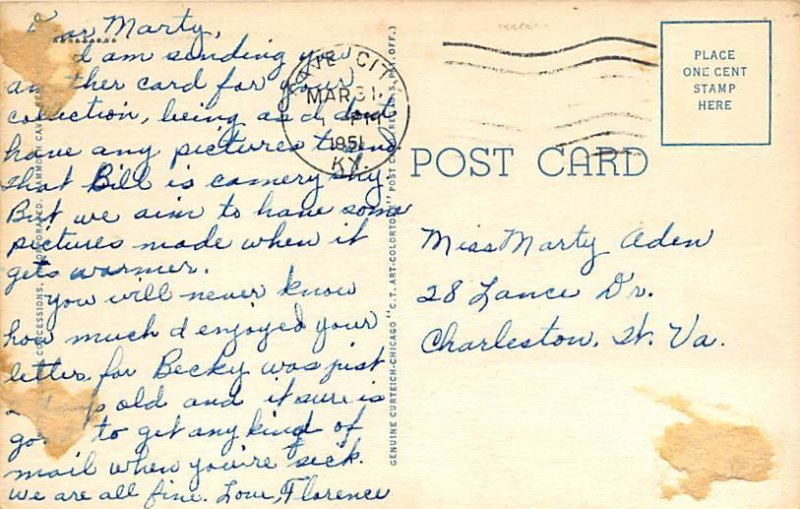 Dear Marty,
I am sending you
another card for your
collection, being as I dont
have any pictures to send
that Bill is camery shy.
But we aim to have some
pictures made when it
gets warmer.
You will never know
how much I enjoyed your
letter, for Becky was just
days old and it sure is
good to get any kind of
mail when you're sick.
We are all fine. Love, Florence
CAVE CITY
MAR 31
PM
1951
KY.
PLACE
ONE CENT
STAMP
HERE
POST CARD
Miss Marty Aden
28 Lance Dr.
Charleston, W. Va.
CONCESSIONS, INCORPORATED, MAMMOTH CAVE,
GENUINE CURTEICH-CHICAGO "C.T. ART-COLORTONE" POST CARD (REG. U.S. PAT. OFF.)